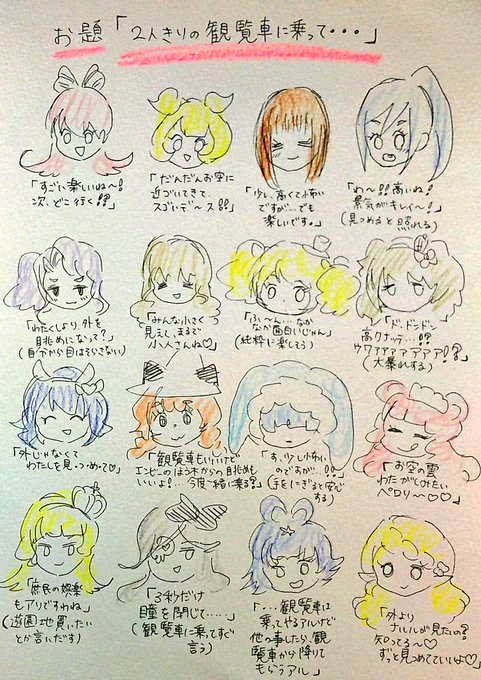 お題「2人きりの観覧車に乗って・・・」
「すごい楽しいね～!
次、どこ行く!?」
「だんだんお空に
近づいてきて、
スゴいデ～ス!!」
「少し、高くて怖い
ですが…でも
楽しいです。」
「わ～!!高いね!
景気がキレイ～!」
(見つめると照れる)
「わたくしより外を
眺めになって?」
(自分から目はそらさない)
「みんな小さく
見えて、まるで
小人さんね♡」
「ふ～ん…なか
なか面白いじゃん」
(純粋に楽しそう)
「ド、ドンドン
高クナッテ…!?
ウワァァァァァァ!?」
(大暴れする)
「外じゃなくて
わたしを見・つ・めて♡」
「観覧車もいいけど
エンビーのほう木からの眺めも
いいよ!…今度一緒に乗る?」
「す、少し怖い
のですが…!!」
(手をにぎると安心
する)
「お空の雲
わたがしみたい
ペロリ～♡♡♡」
「庶民の娯楽
もアリですわね」
(遊園地買いたい
とか言いだす)
「3秒だけ
瞳を閉じて……」
(観覧車に乗ってすぐ
言う)
「・・・観覧車は
乗ってやるアルけど
他の事したら、観
覧車から降りて
もらうアル」
「外より
ナルルが見たいの?
知ってる～♡
ずっと見つめてていいよ♡」